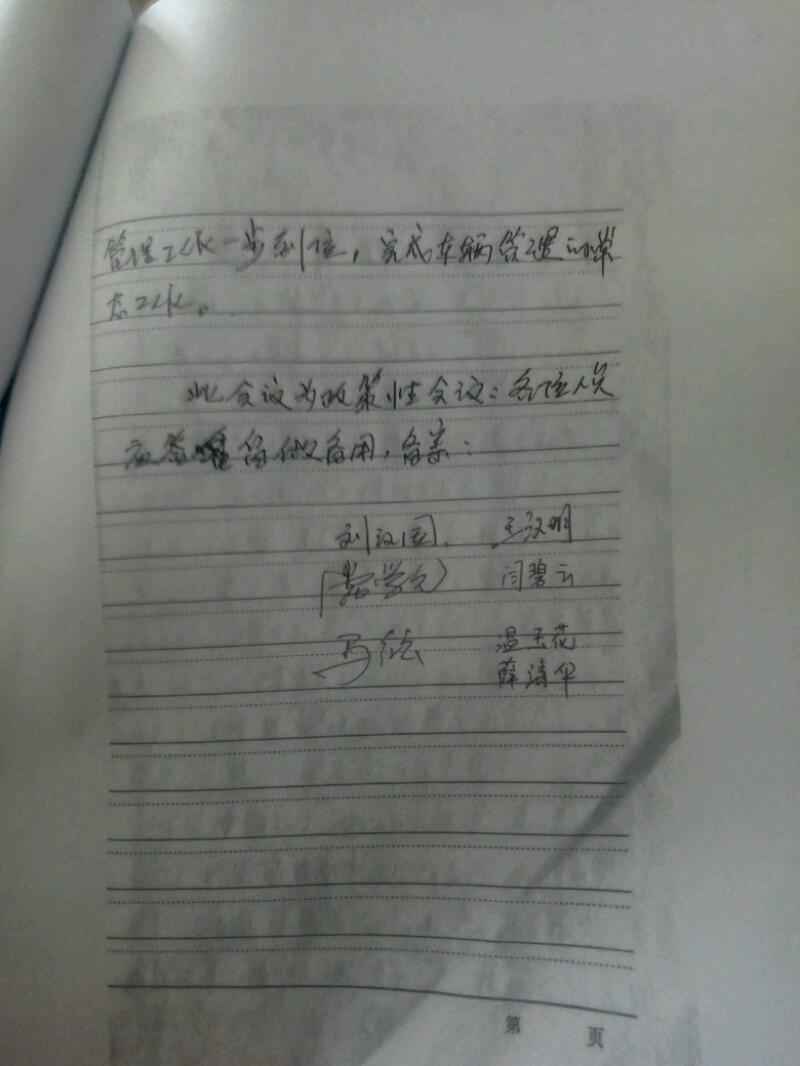 管理工作一步到位，完成车辆管理的常
态工作。
此会议为政策性会议：各位人员
应签 备用，备案：
刘汉国 王汉明
闫碧云
马 温玉花
薛清华
第 页